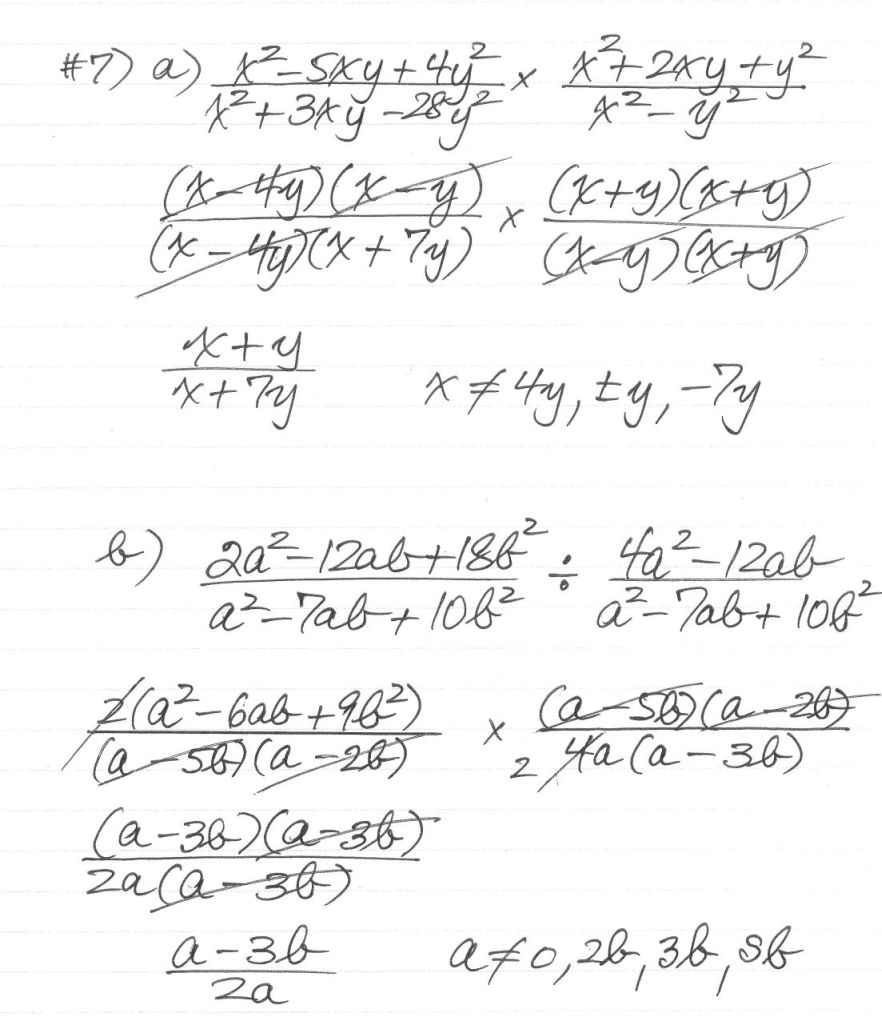 #7) a) (x² - 5xy + 4y²)/(x² + 3xy - 28y²) × (x² + 2xy + y²)/(x² - y²)
((x - 4y)(x - y))/((x - 4y)(x + 7y)) × ((x + y)(x + y))/((x - y)(x + y))
(x + y)/(x + 7y)    x ≠ 4y, ±y, -7y
b) (2a² - 12ab + 18b²)/(a² - 7ab + 10b²) ÷ (4a² - 12ab)/(a² - 7ab + 10b²)
(2(a² - 6ab + 9b²))/((a - 5b)(a - 2b)) × ((a - 5b)(a - 2b))/(2 4a(a - 3b))
((a - 3b)(a - 3b))/(2a(a - 3b))
(a - 3b)/(2a)    a ≠ 0, 2b, 3b, 5b